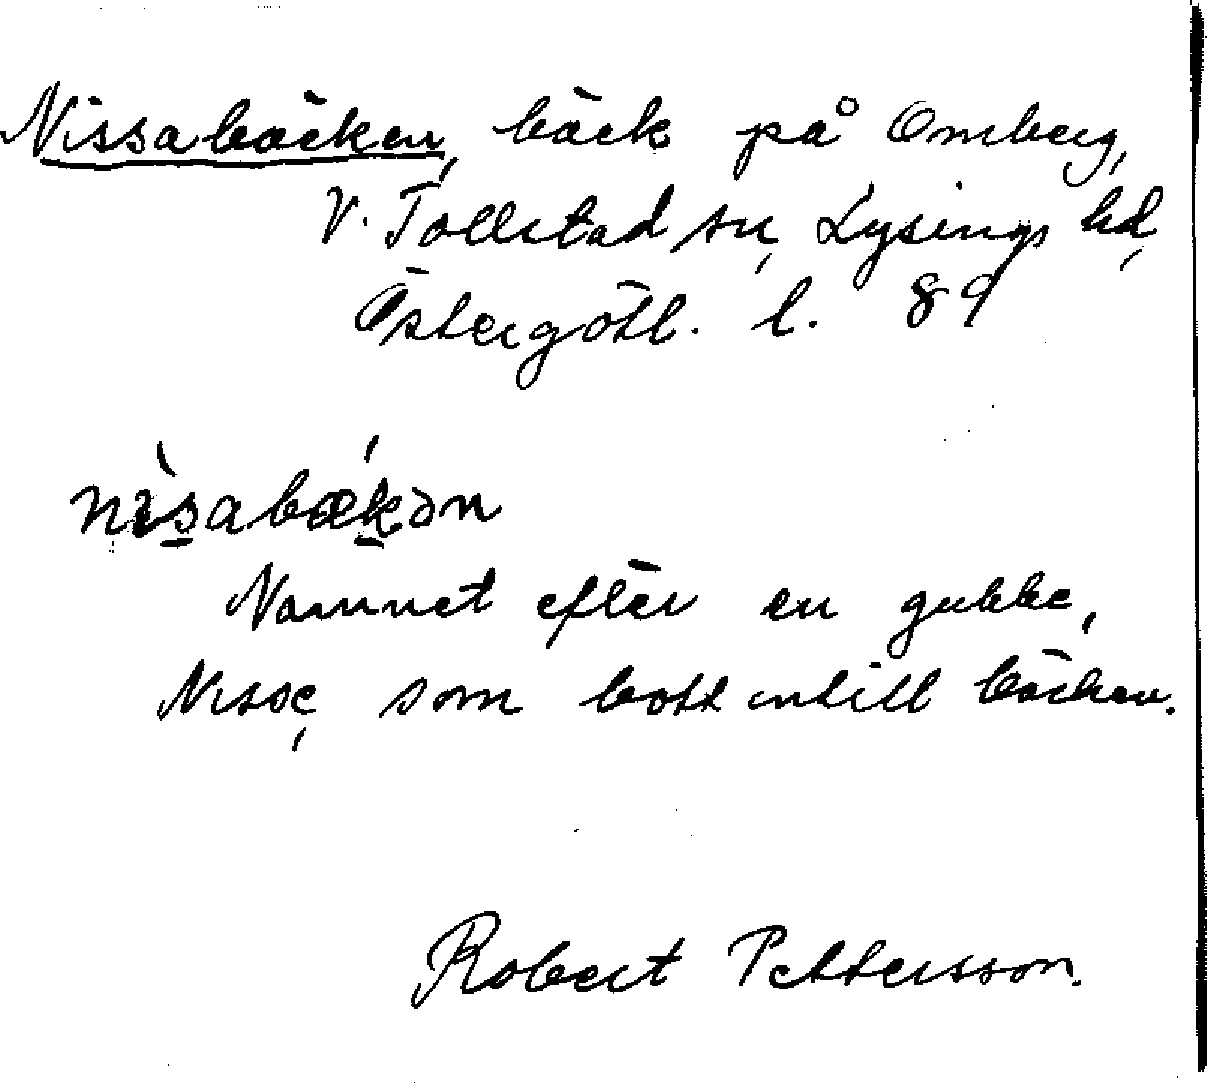 Nissabäcken, bäck på Omberg,
V. Tollstad sn, Lysings hd,
Östergötl. l. 89
nìsabǽkən
Namnet efter en gubbe,
Nisse, som bott intill bäcken.
Robert Pettersson.